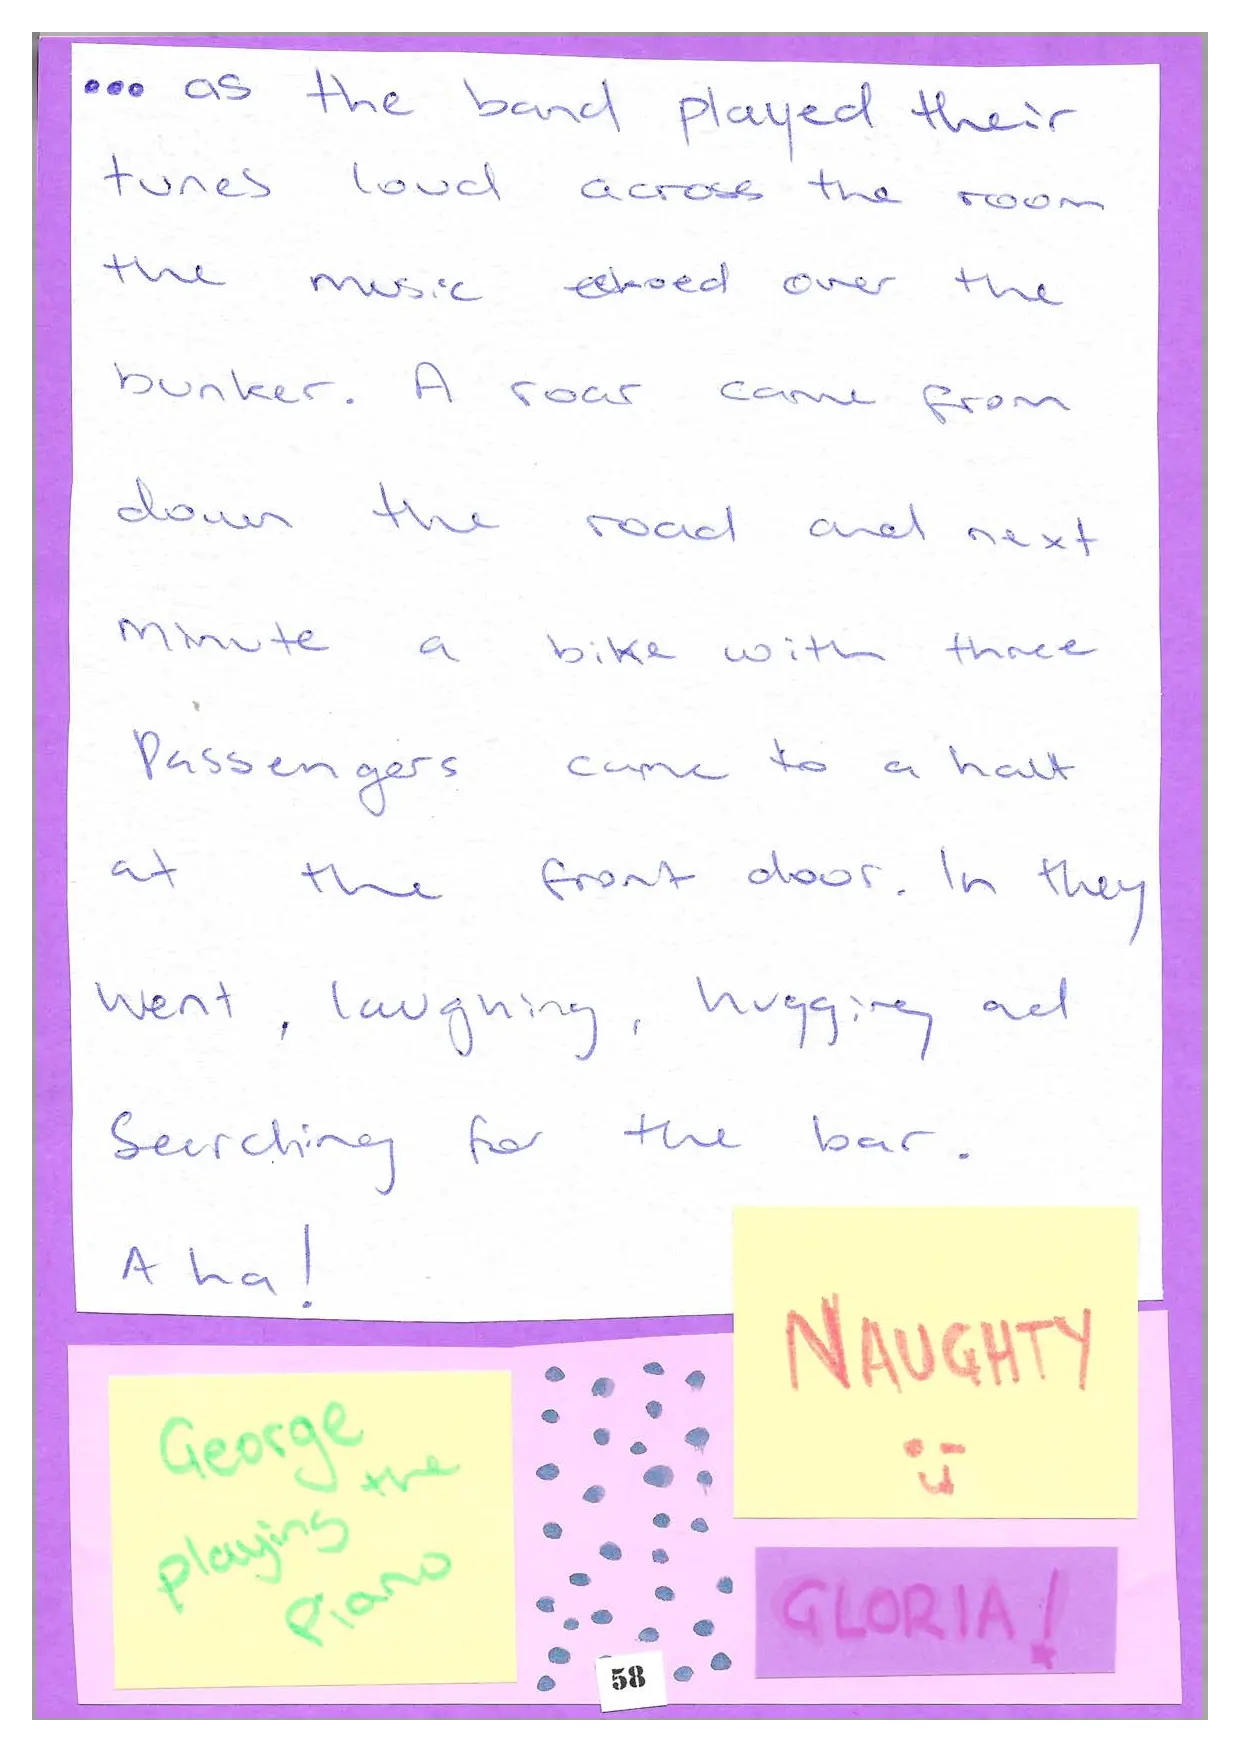 ... as the band played their
tunes loud across the room
the music echoed over the
bunker. A roar came from
down the road and next
minute a bike with three
Passengers came to a halt
at the front door. In they
went, laughing, hugging ad
Searching for the bar.
Aha!
NAUGHTY
George
playing the
Piano
GLORIA!
58